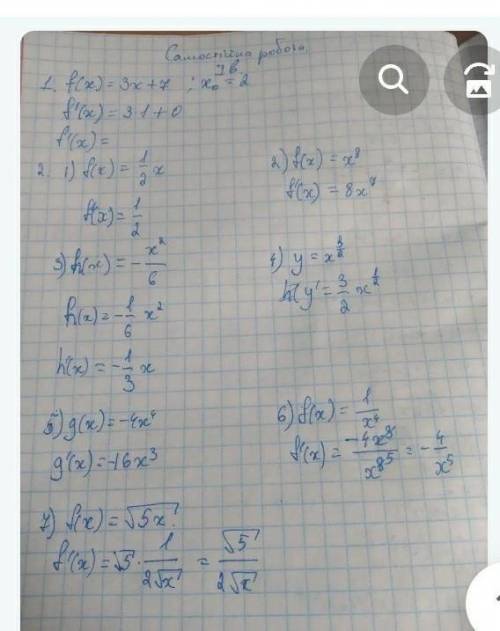 Самостійна робота
Ів.
1. f(x) = 3x + 7 ; x₀ = 2
f'(x) = 3·1 + 0
f'(x) =
2. 1) f(x) = 1/2 x
f'(x) = 1/2
2) f(x) = x⁸
f'(x) = 8x⁷
3) h(x) = - x²/6
h(x) = - 1/6 x²
h'(x) = - 1/3 x
4) y = x^(3/2)
y' = 3/2 x^(1/2)
5) g(x) = -4x⁴
g'(x) = -16x³
6) f(x) = 1/x⁴
f'(x) = -4x³/x⁸ = - 4/x⁵
7) f(x) = √5x
f'(x) = √5 · 1/(2√x) = √5/(2√x)